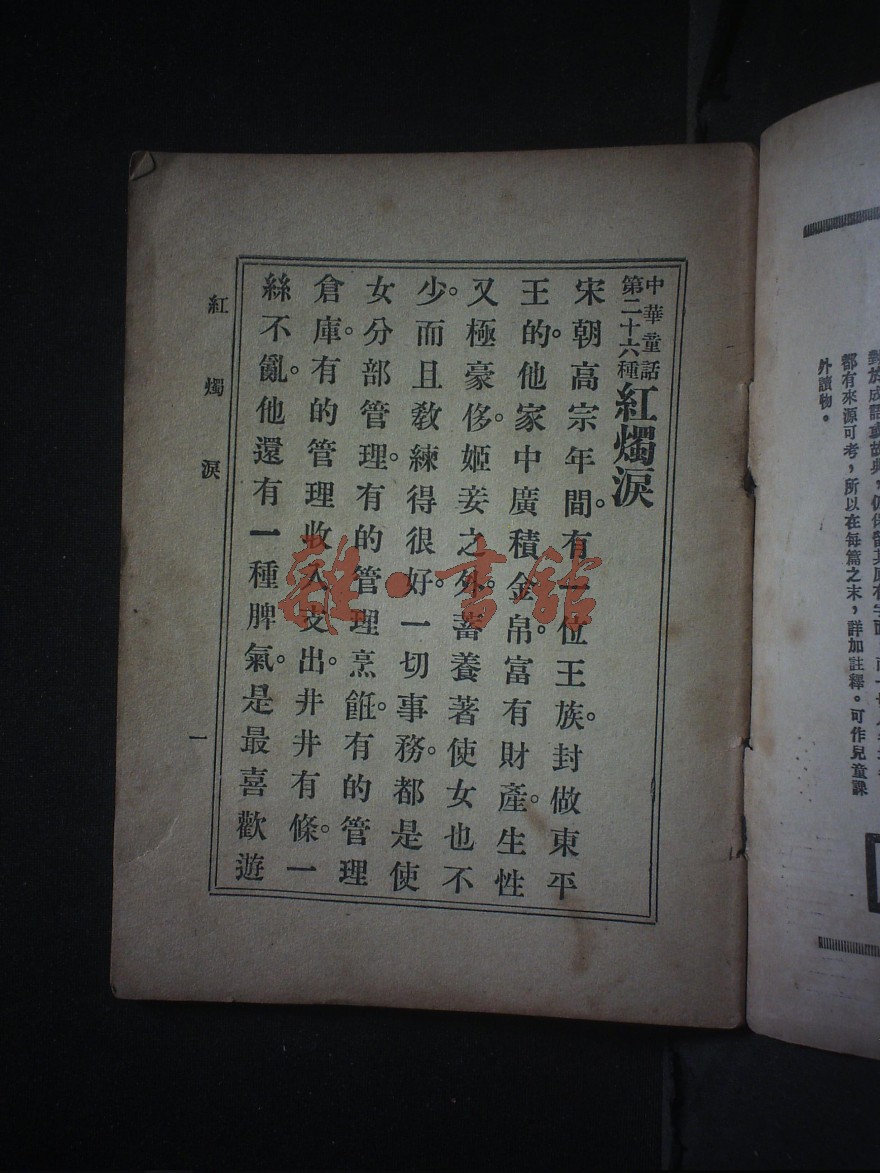 對於成語或故典，仍保留其原有字面，
都有來源可考，所以在每篇之末，詳加註釋。可作兒童課
外讀物。
中華童話
第二十六種
紅燭淚
宋朝高宗年間。有一位王族。封做東平
王的。他家中廣積金帛。富有財產。生性
又極豪侈。姬妾之外。蓄養著使女也不
少。而且教練得很好。一切事務。都是使
女分部管理。有的管理烹飪。有的管理
倉庫。有的管理收入支出。井井有條。一
絲不亂。他還有一種脾氣。是最喜歡遊
紅燭淚
一
雜·書館